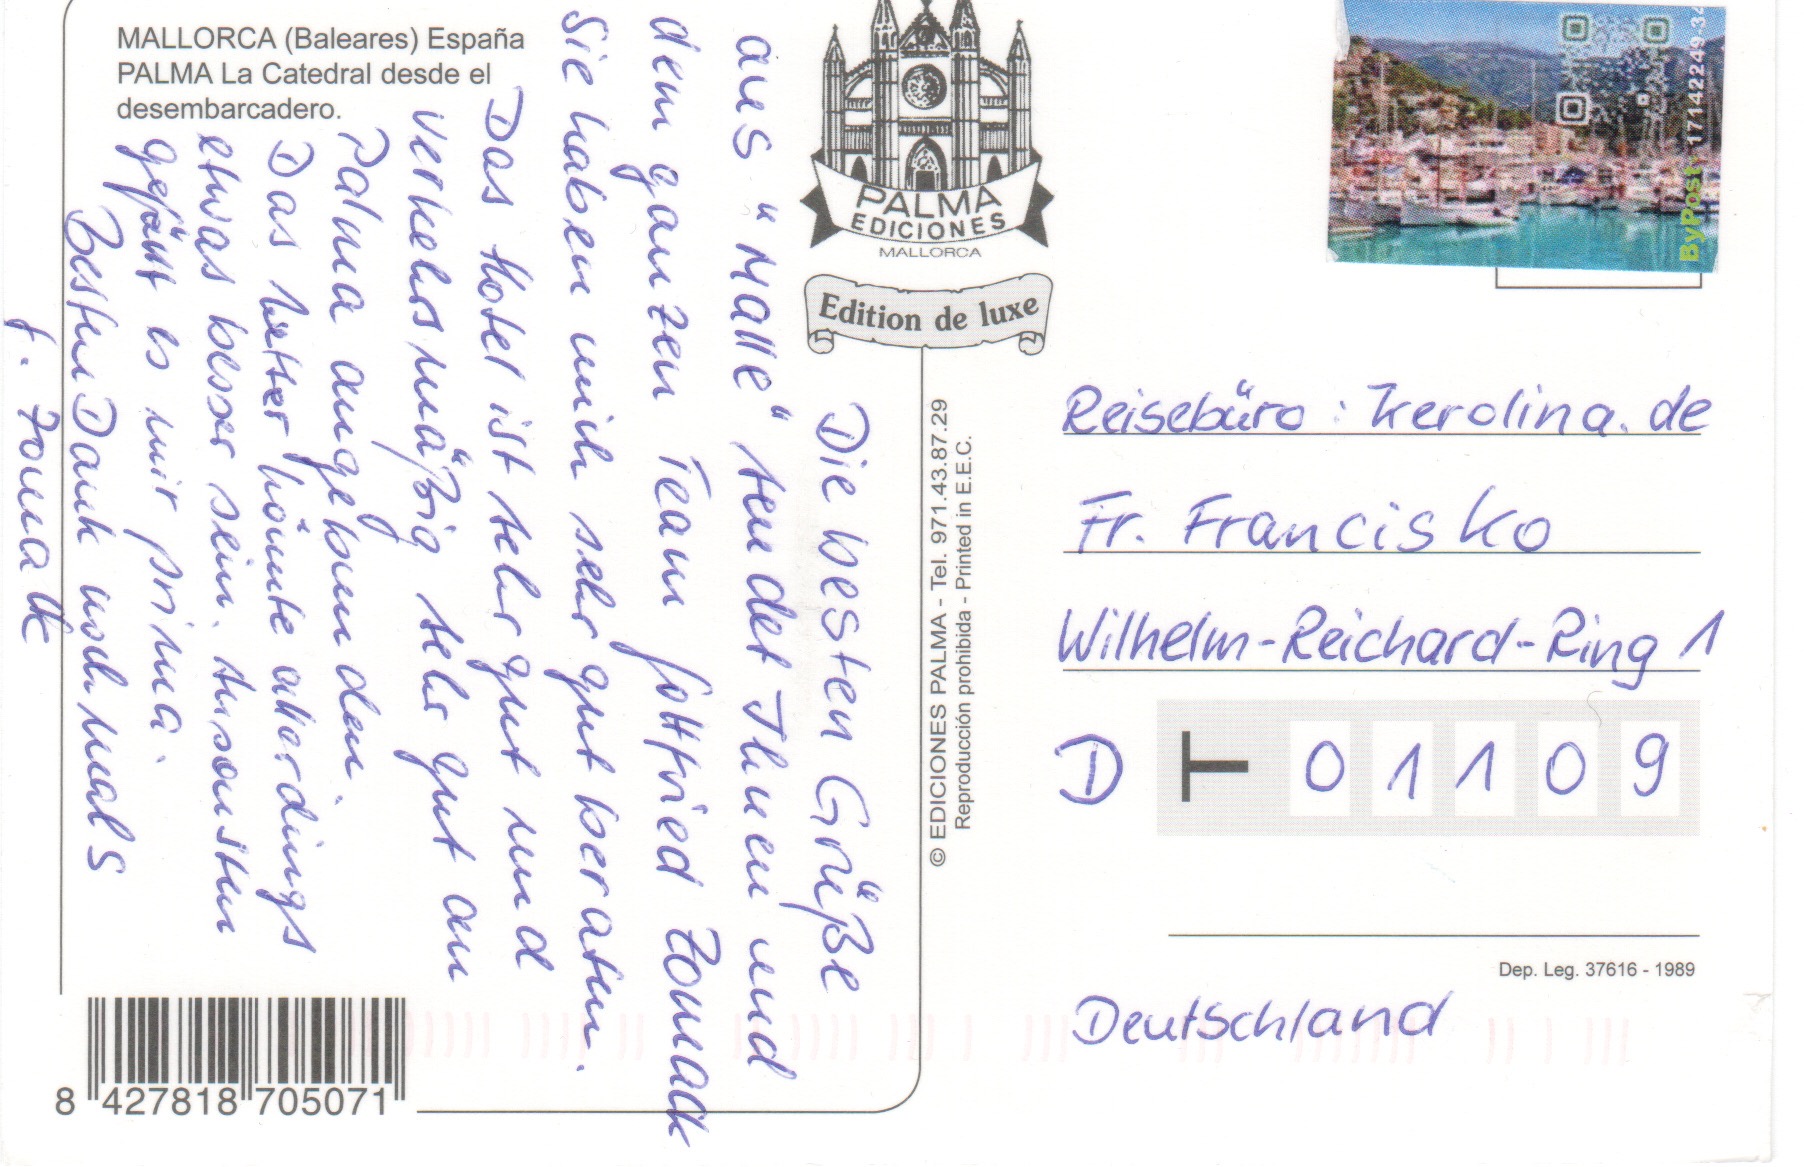 MALLORCA (Baleares) España
PALMA La Catedral desde el
desembarcadero.
Die besten Grüße
aus "Malle" sendet Ihnen und
dem ganzen Team Gottfried Zomack
Sie haben mich sehr gut beraten.
Das Hotel ist sehr gut und
verkehrsmäßig sehr gut an
Palma angebunden.
Das Wetter könnte allerdings
etwas besser sein. Ansonsten
gefällt es mir prima.
Besten Dank nochmals
PALMA
EDICIONES
MALLORCA
Edition de luxe
© EDICIONES PALMA - Tel. 971.43.87.29
Reproducción prohibida - Printed in E.E.C.
ByPost 17142249-34
Reisebüro: Kerolina.de
Fr. Francisko
Wilhelm-Reichard-Ring 1
D 01109
Dep. Leg. 37616 - 1989
Deutschland
8 427818 705071